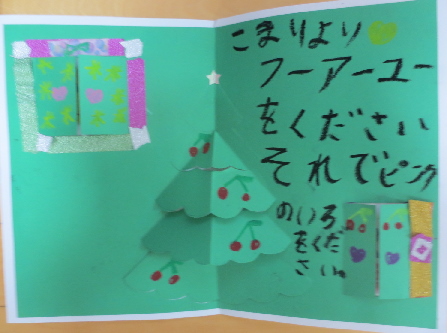 こまりより
フーアーユー
をください
それでピンク
のいろ
をくだ
さい。